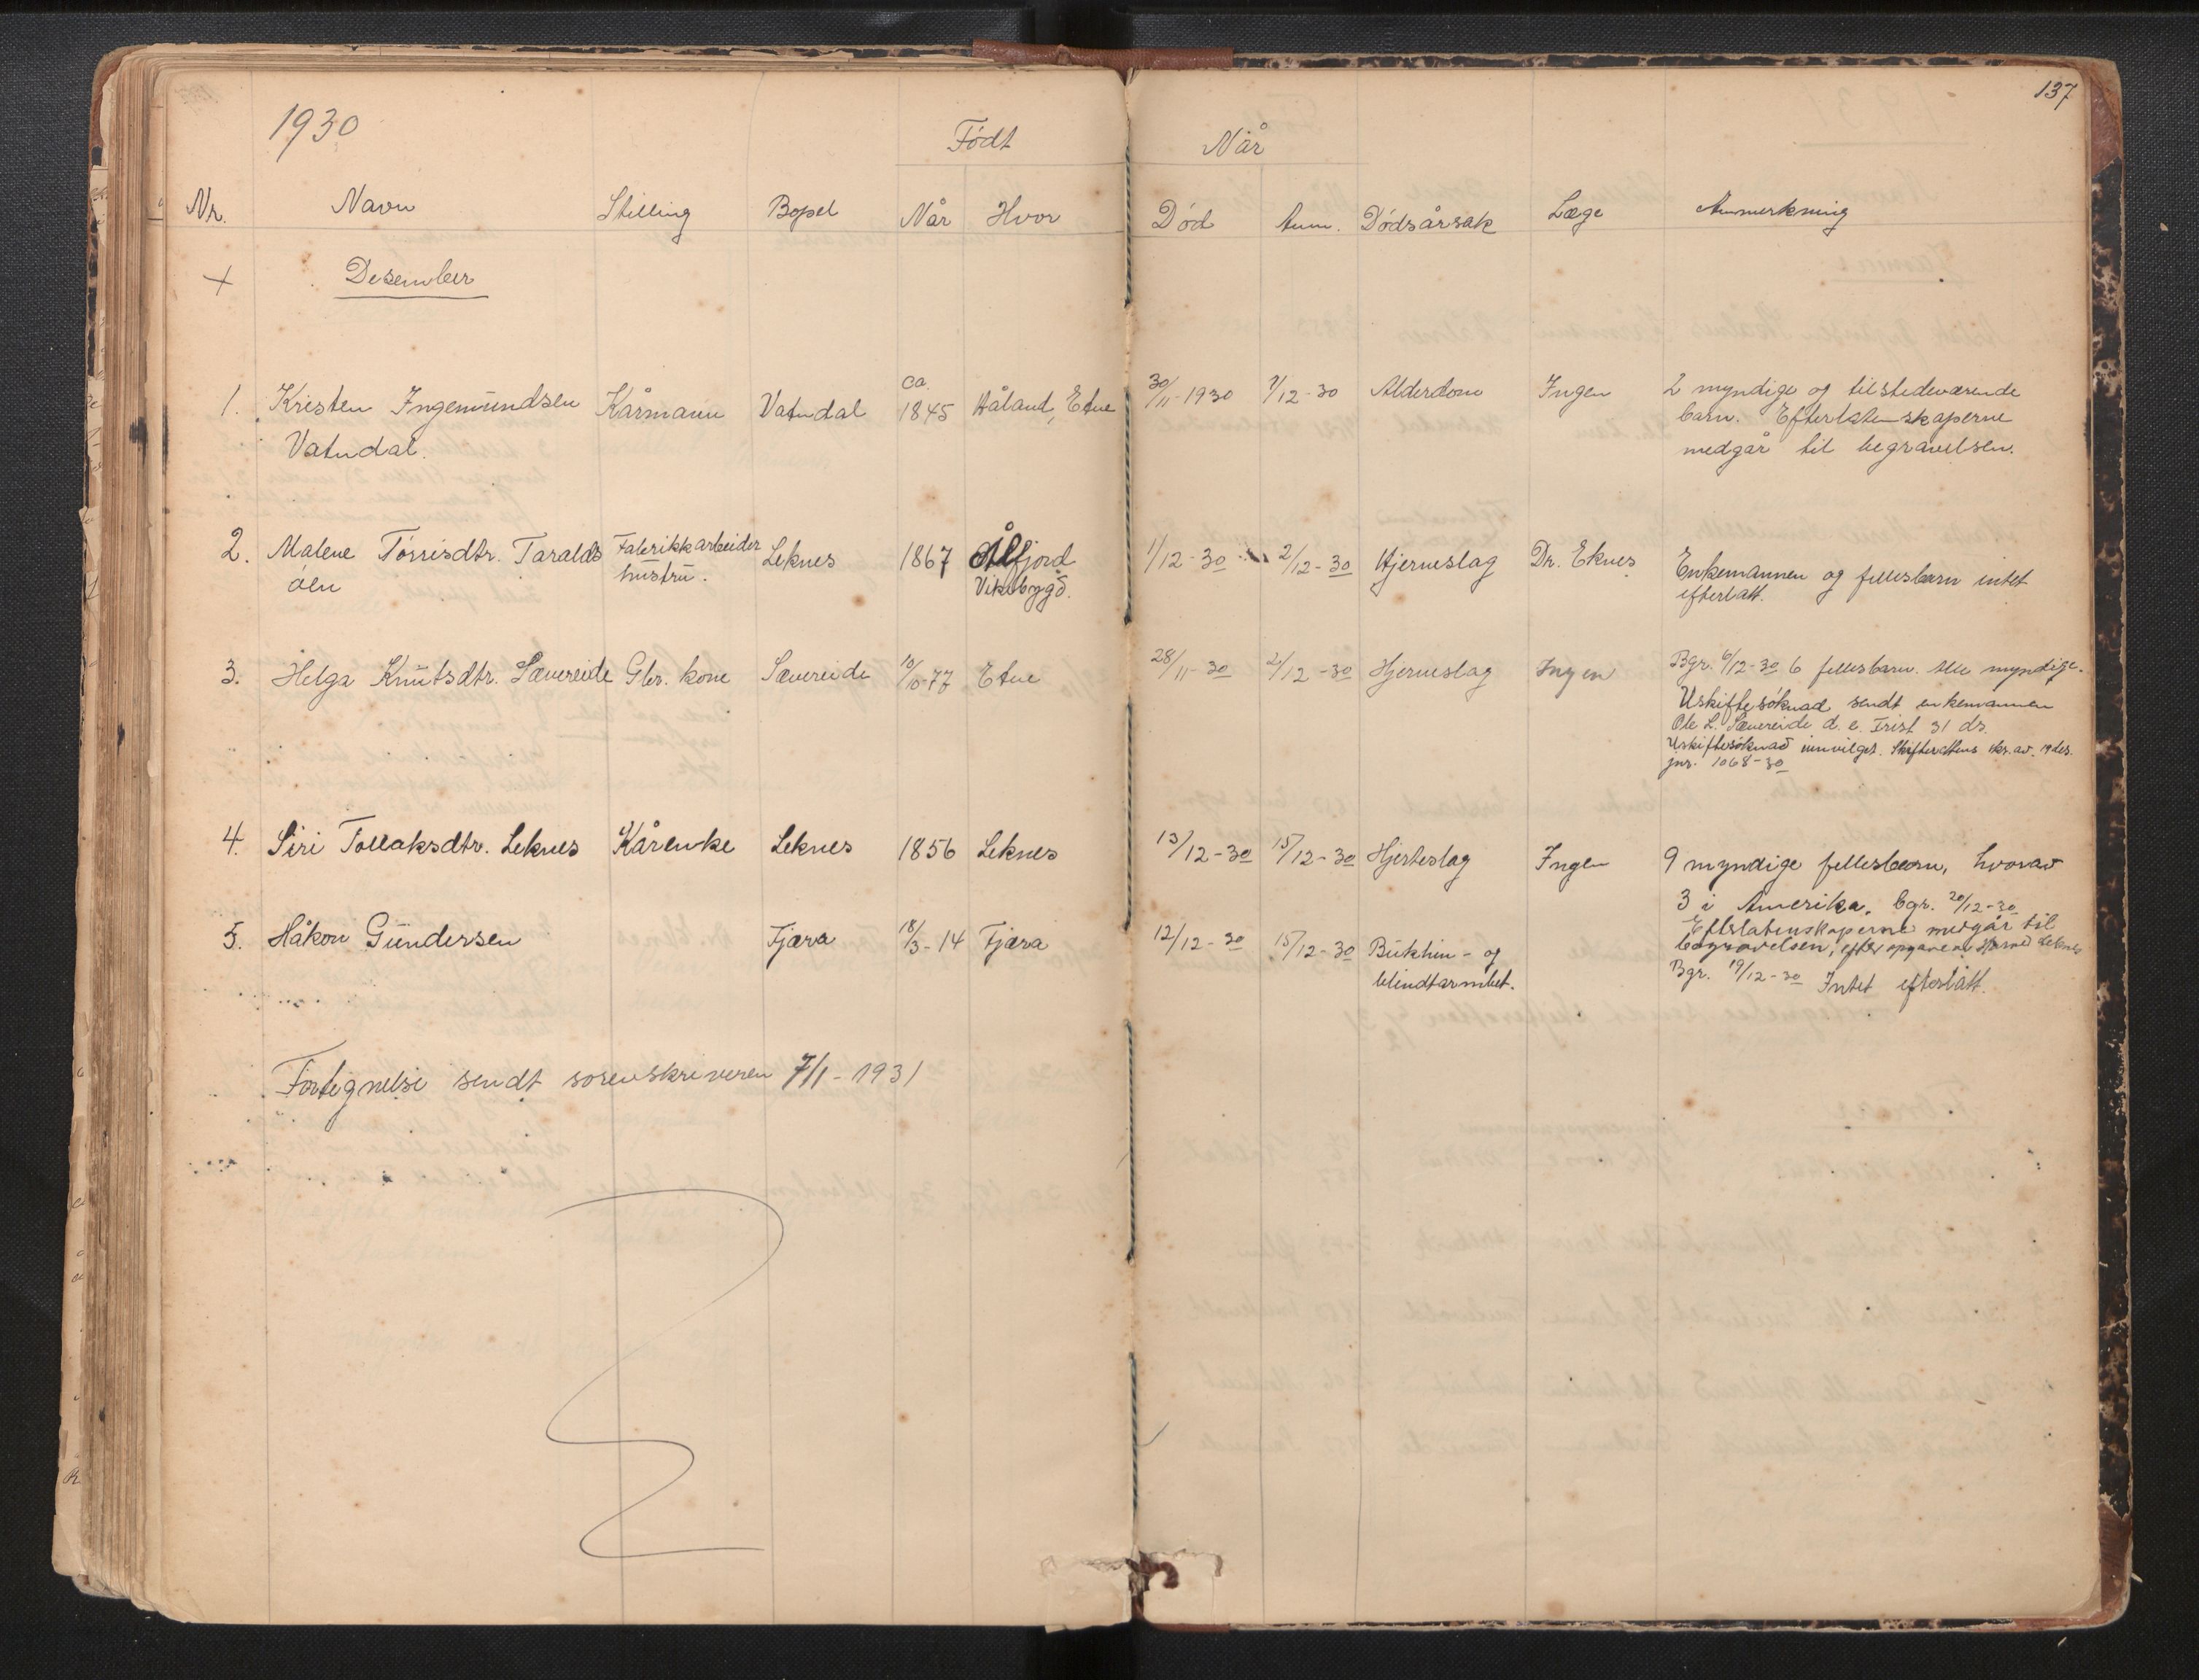 137
1930
Født
Når
Nr. Navn Stilling Bopel Når Hvor Død Anm. Dødsårsak Læge Anmerkning
+ Desember
1. Kristen Ingemundsen Vatndal. Kårmann Vatndal ca. 1845 Håland, Etne 30/11-1930 /12-30 Alderdom Ingen 2 myndige og tilstedeværende
barn. Efterlatenskaperne
medgår til begravelsen.
2. Malene Tørrisdtr. Taralds
øen Fabrikkarbeider
hustru. Leknes 1867 Ålfjord
Vikebygd. 1/12-30 2/12-30 Hjerneslag Dr. Eknes Enkemannen og fellesbarn intet
efterlatt.
3. Helga Knutsdtr. Sævereide Gbr. kone Sævereide 10/10-77 Etne 28/11-30 2/12-30 Hjerneslag Ingen Bgr. 6/12-30 6 fellesbarn. Alle myndige.
Uskiftesøknad sendt enkemannen
Ole L. Sævereide d. e. Frist 31 ds.
Uskiftesøknad innvilget. Skifterettens skr. av. 19 des.
jnr. 1068-30
4. Siri Tollaksdtr. Leknes Kårenke Leknes 1856 Leknes 13/12-30 15/12-30 Hjerteslag Ingen 9 myndige fellesbarn, hvorav
3 i Amerika. bgr. 20/12-30
Efterlatenskaperne medgår til
begravelsen, efter opgave av Leknes
5. Håkon Gundersen Fjæra 18/3-14 Fjæra 12/12-30 15/12-30 Bukhin- og
blindtarmbet. Bgr. 19/12-30 Intet efterlatt.
Fortegnelse sendt sorenskriveren 7/1-1931